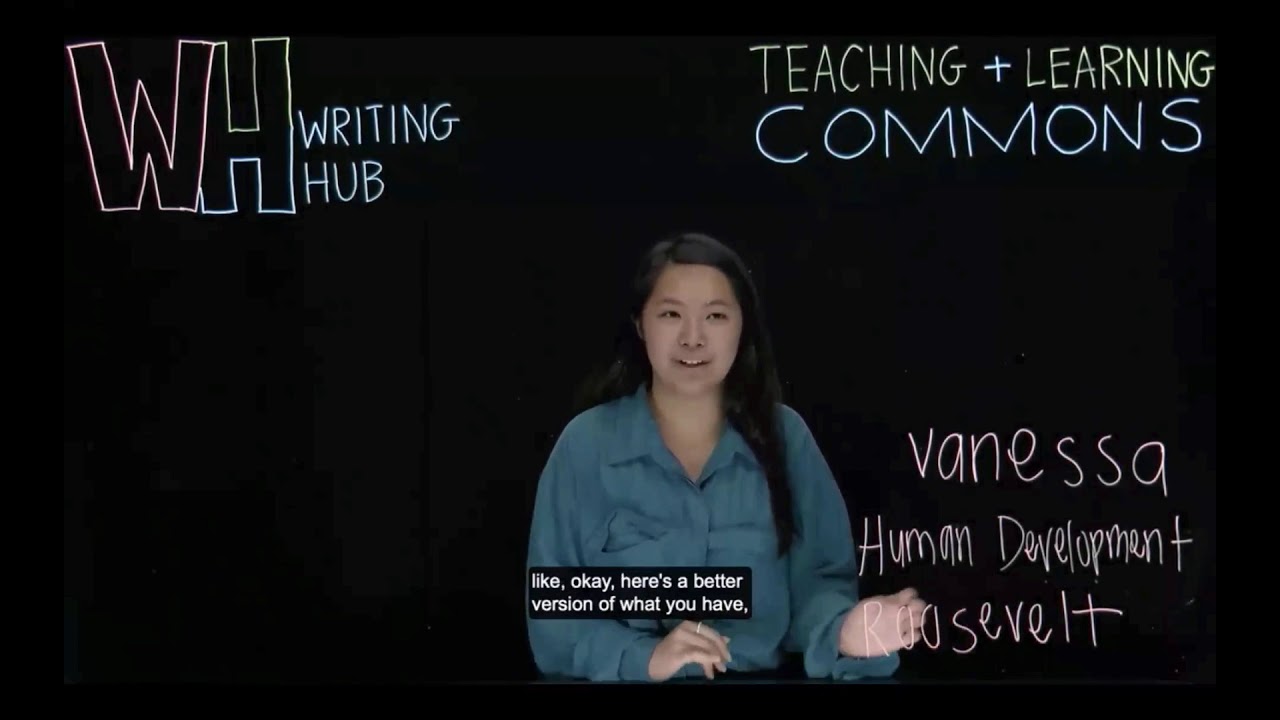 WH
WRITING
HUB
TEACHING + LEARNING
COMMONS
vanessa
Human Development
Roosevelt
like, okay, here's a better
version of what you have,